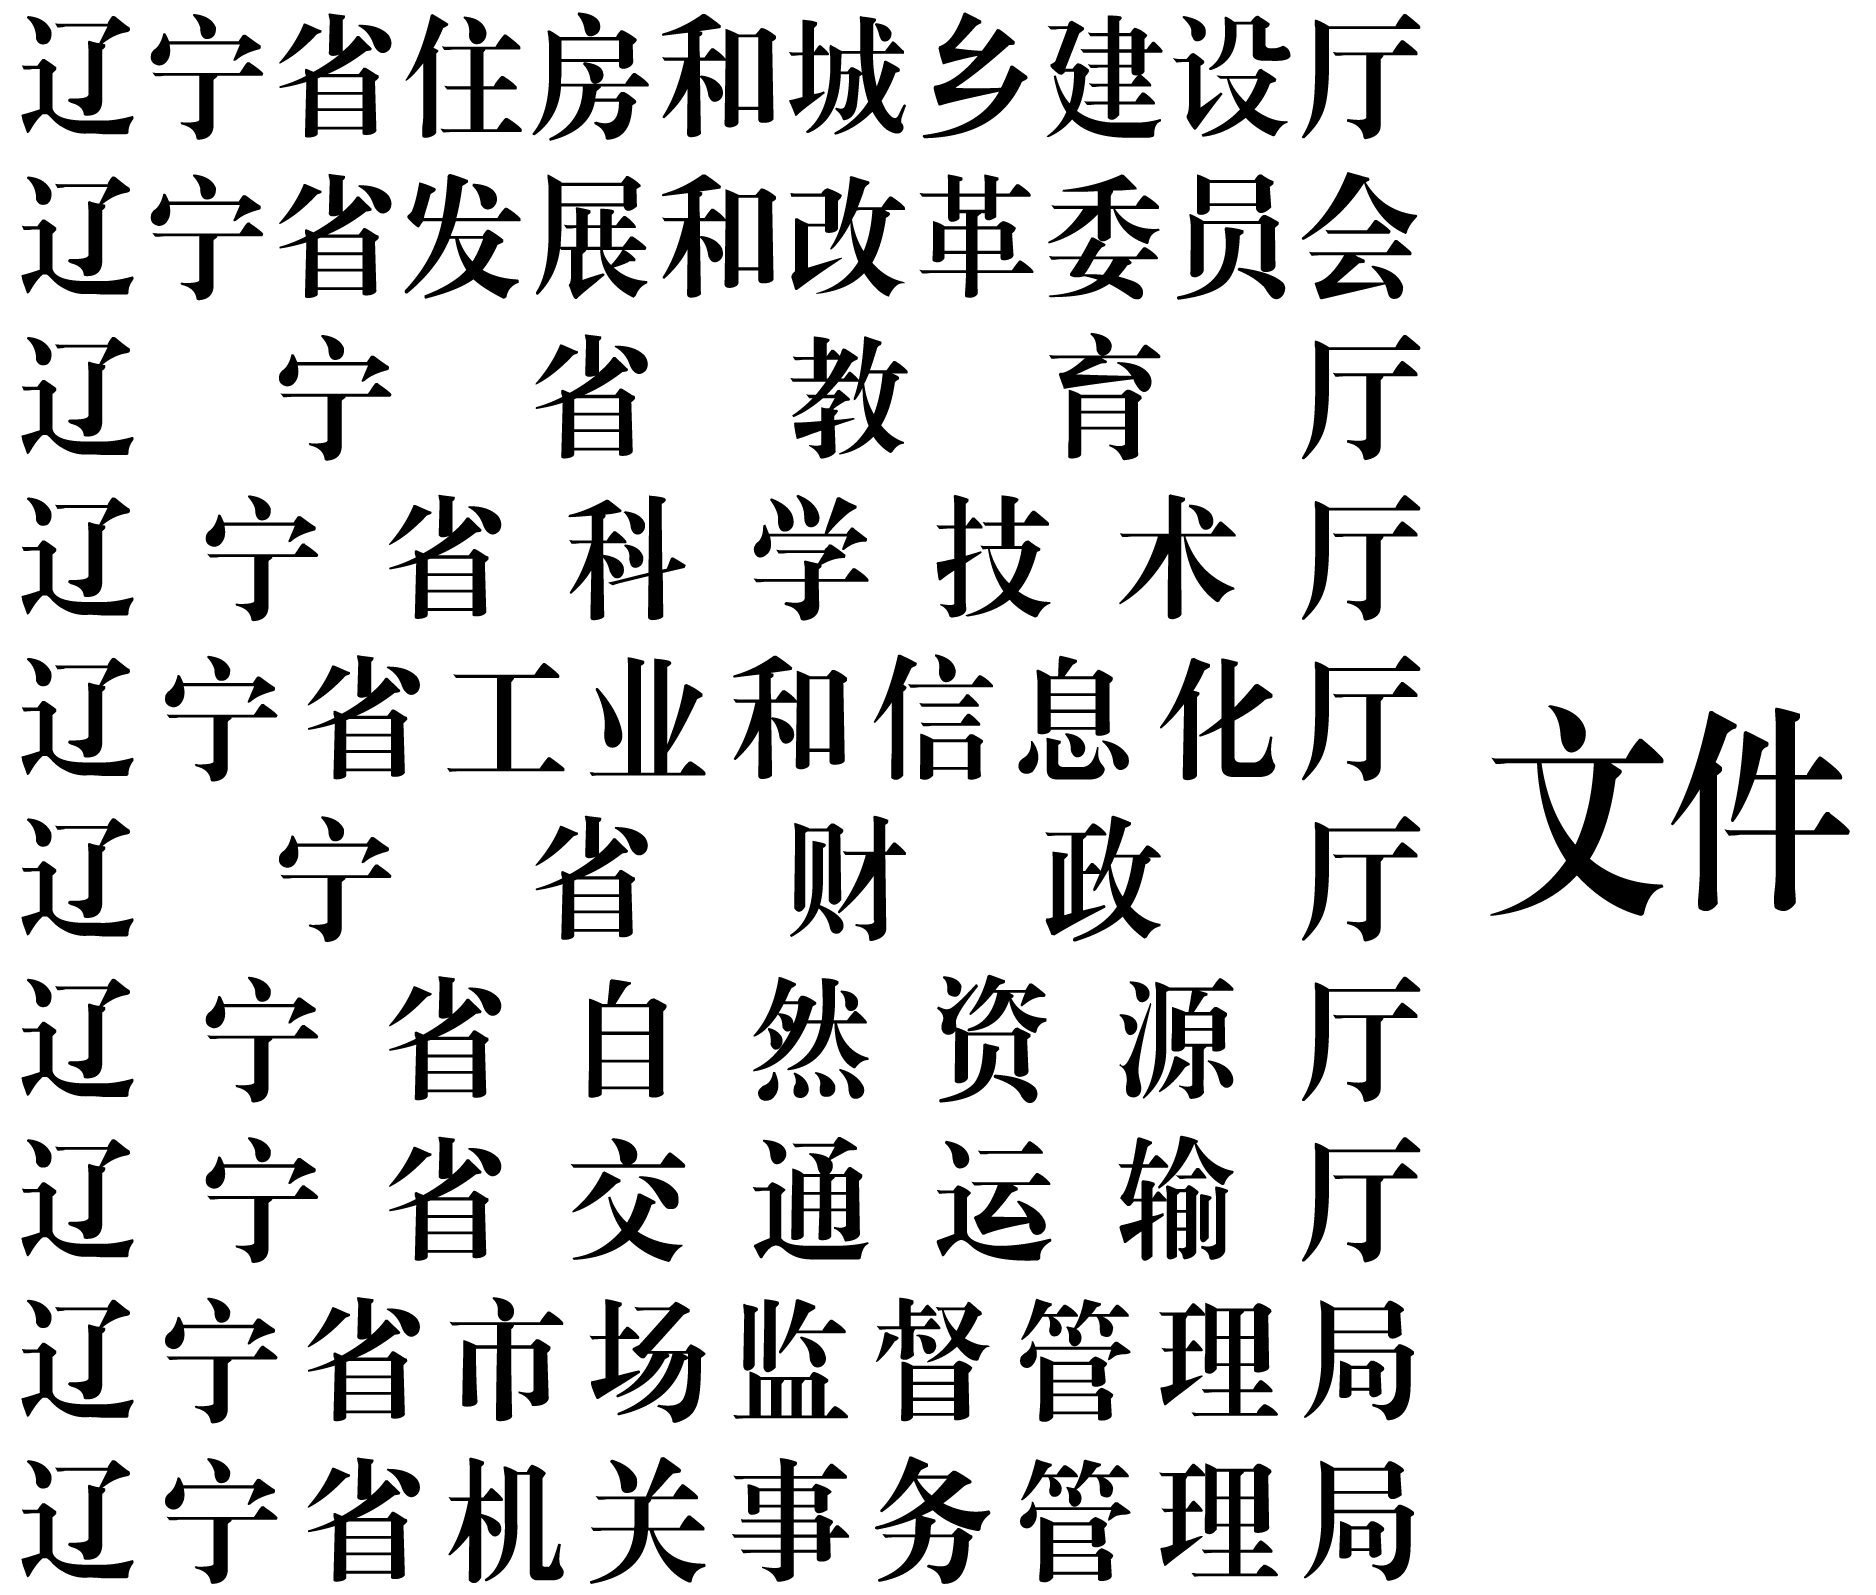 辽宁省住房和城乡建设厅
辽宁省发展和改革委员会
辽宁省教育厅
辽宁省科学技术厅
辽宁省工业和信息化厅
辽宁省财政厅
辽宁省自然资源厅
辽宁省交通运输厅
辽宁省市场监督管理局
辽宁省机关事务管理局
文件